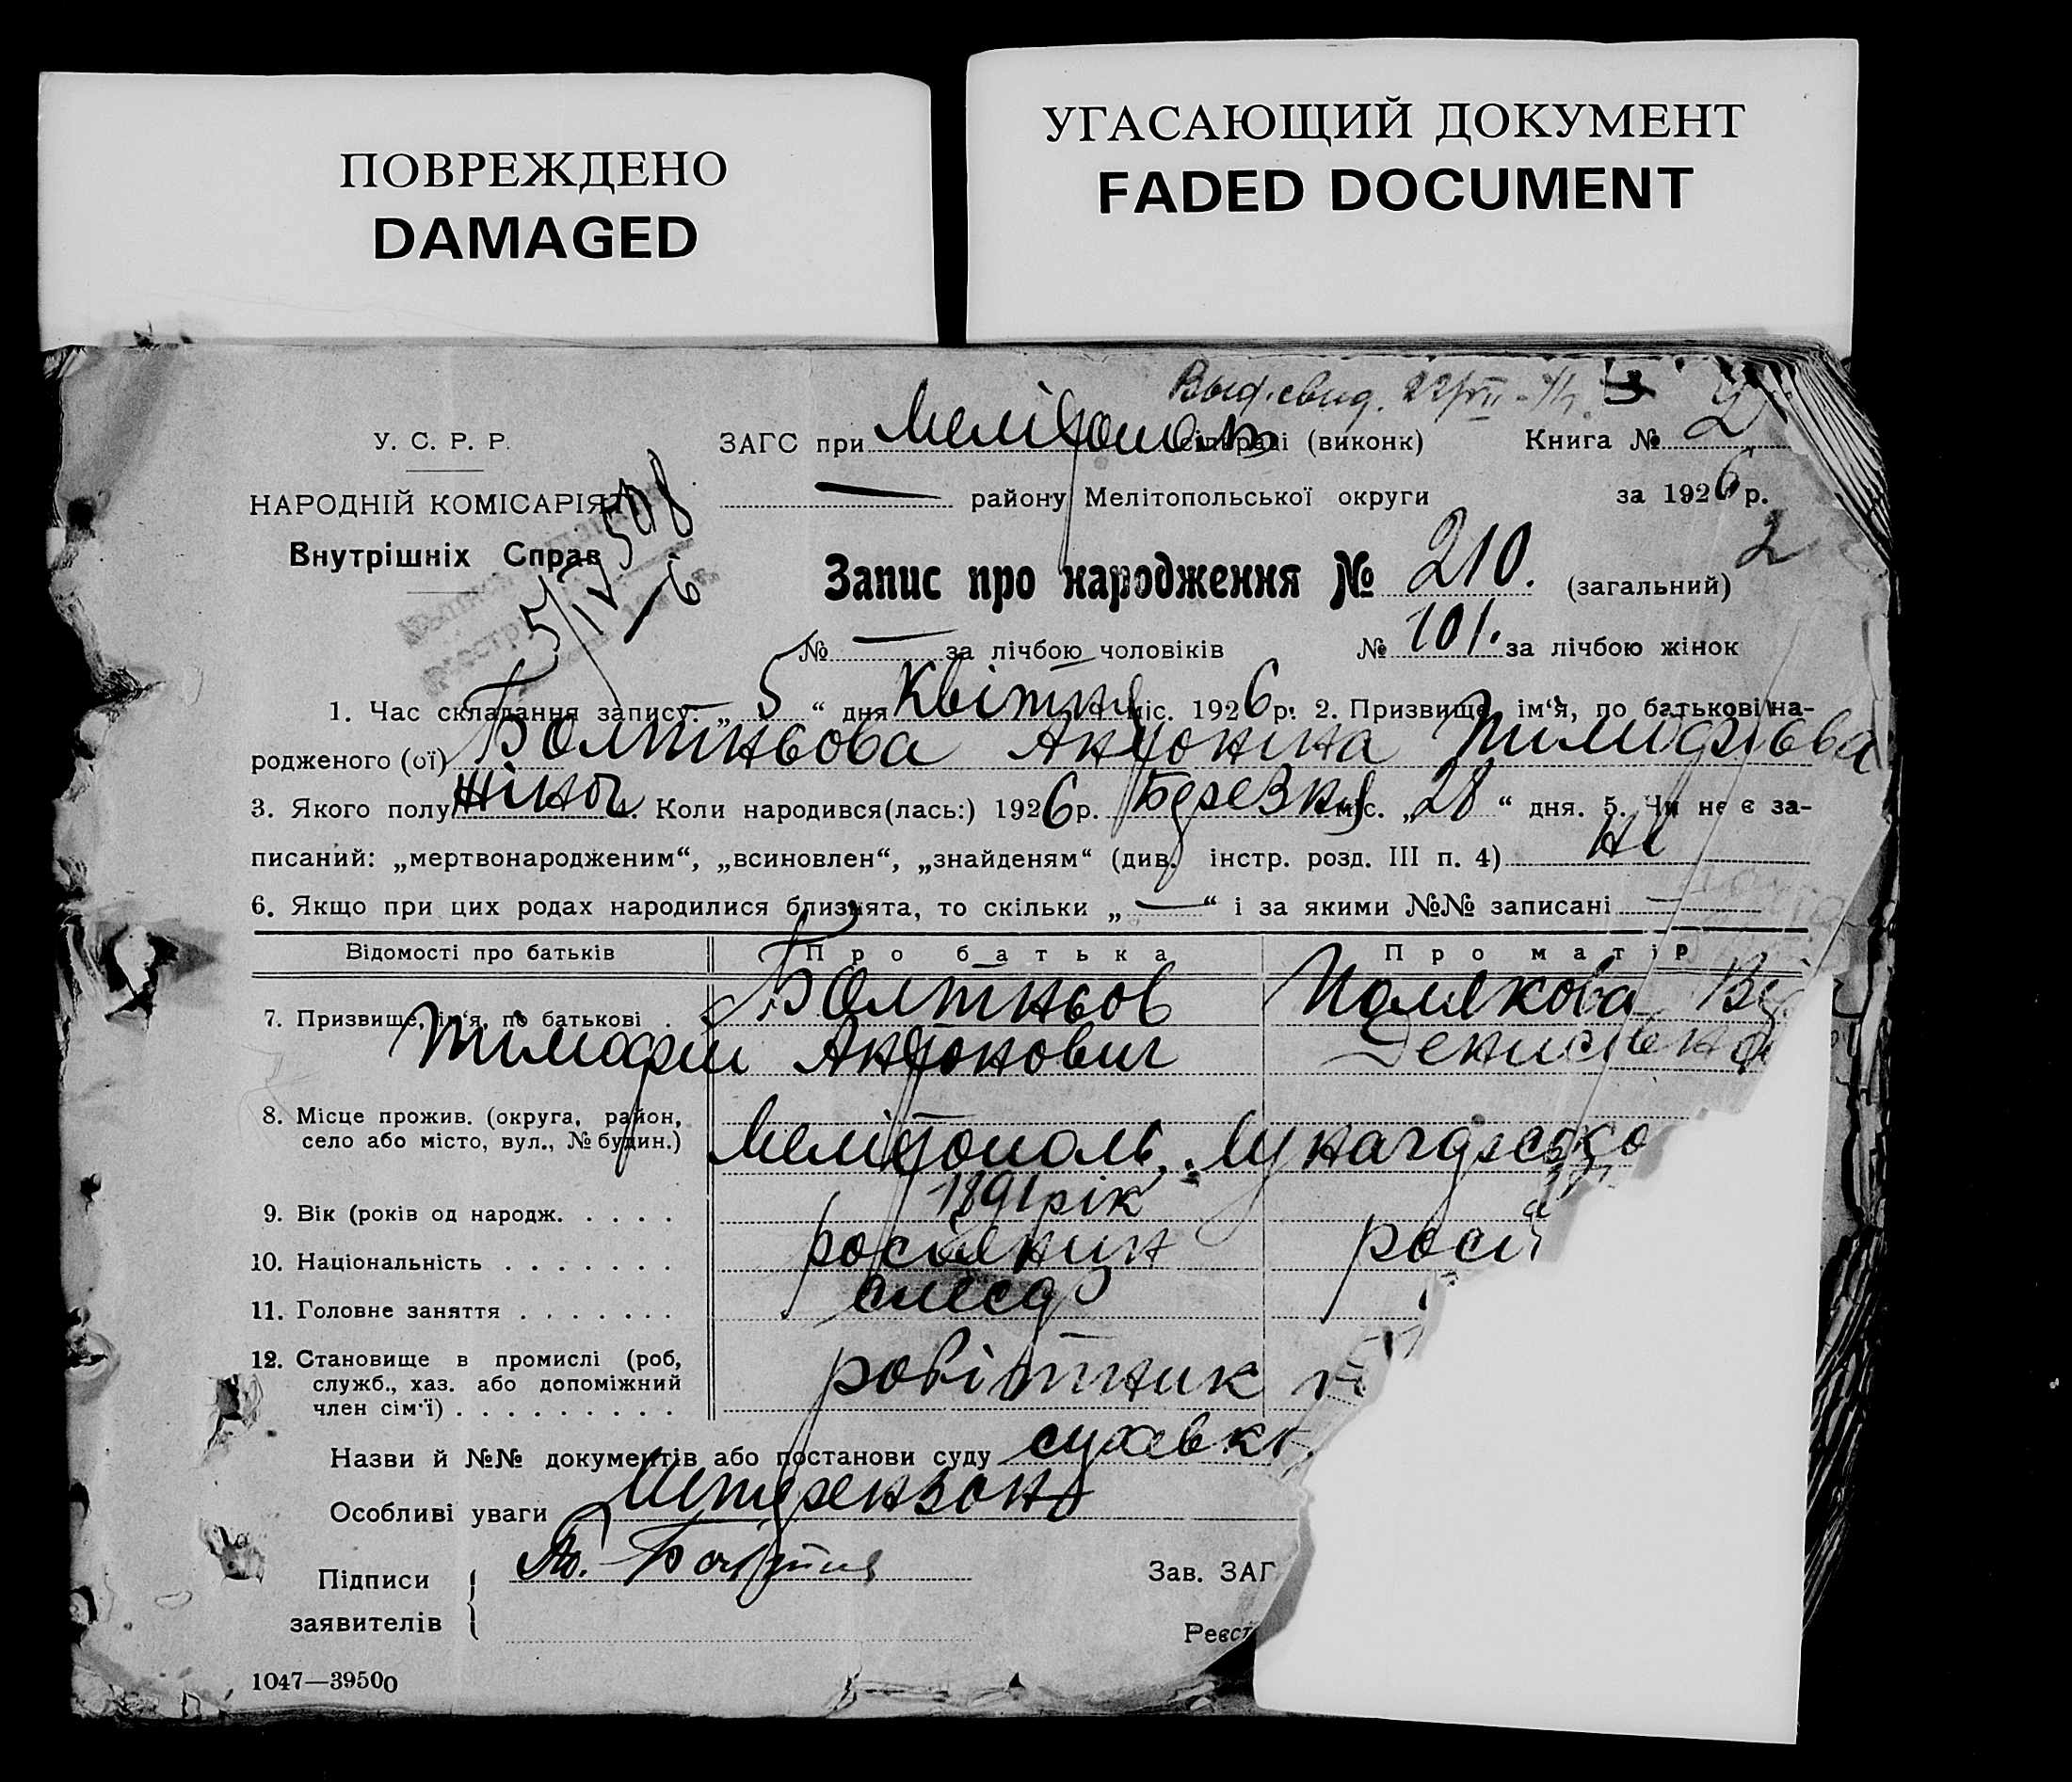 ПОВРЕЖДЕНО
DAMAGED
УГАСАЮЩИЙ ДОКУМЕНТ
FADED DOCUMENT
Выд. свид. 22/VII
У. С. Р. Р.
ЗАГС при Мелітополь сільраді (виконк) Книга № 2
НАРОДНІЙ КОМІСАРІЯТ
Внутрішніх Справ
— району Мелітопольської округи за 1926 р.
2
5/IV
Запис про народження № 210. (загальний)
№ — за лічбою чоловіків № 101. за лічбою жінок
1. Час складання запису: „ 5 “ дня Квітня міс. 1926 р. 2. Призвище, ім‘я, по батькові на-
родженого (ої) Болтньова Антоніна Тимофієва
3. Якого полу жіноч. Коли народився(лась:) 1926 р. Березня міс. „ 28 “ дня. 5. Чи не є за-
писаний: „мертвонародженим“, „всиновлен“, „знайденям“ (див. інстр. розд. III п. 4) Ні
6. Якщо при цих родах народилися близнята, то скільки „ — “ і за якими №№ записані —
Відомості про батьків Про батька Про матір
7. Призвище, ім‘я, по батькові . Болтньов Полякова
Тимофій Антонович Денисівна
8. Місце прожив. (округа, район,
село або місто, вул., № будин.) Мелітополь, Луначарсько
9. Вік (років од народж. . . . . 1891 рік
10. Національність . . . . . . . росіянин росі
11. Головне заняття . . . . . . . слесар
12. Становище в промислі (роб,
служб., хаз. або допоміжний
член сім‘ї) . . . . . . . . . робітник
Назви й №№ документів або постанови суду
Особливі уваги
Підписи
заявителів
Зав. ЗАГ
Реєст
1047—39500